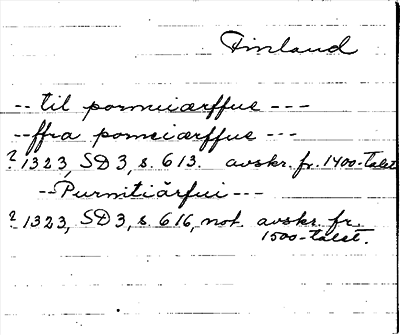 Finland
-- til pormiærffue ---
-- ffra pomeiærffue ---
? 1323, SD 3, s. 613. avskr. fr. 1400-talet
-- Purnitiärfui ---
? 1323, SD 3, s. 616, not. avskr. fr.
1500-talet.